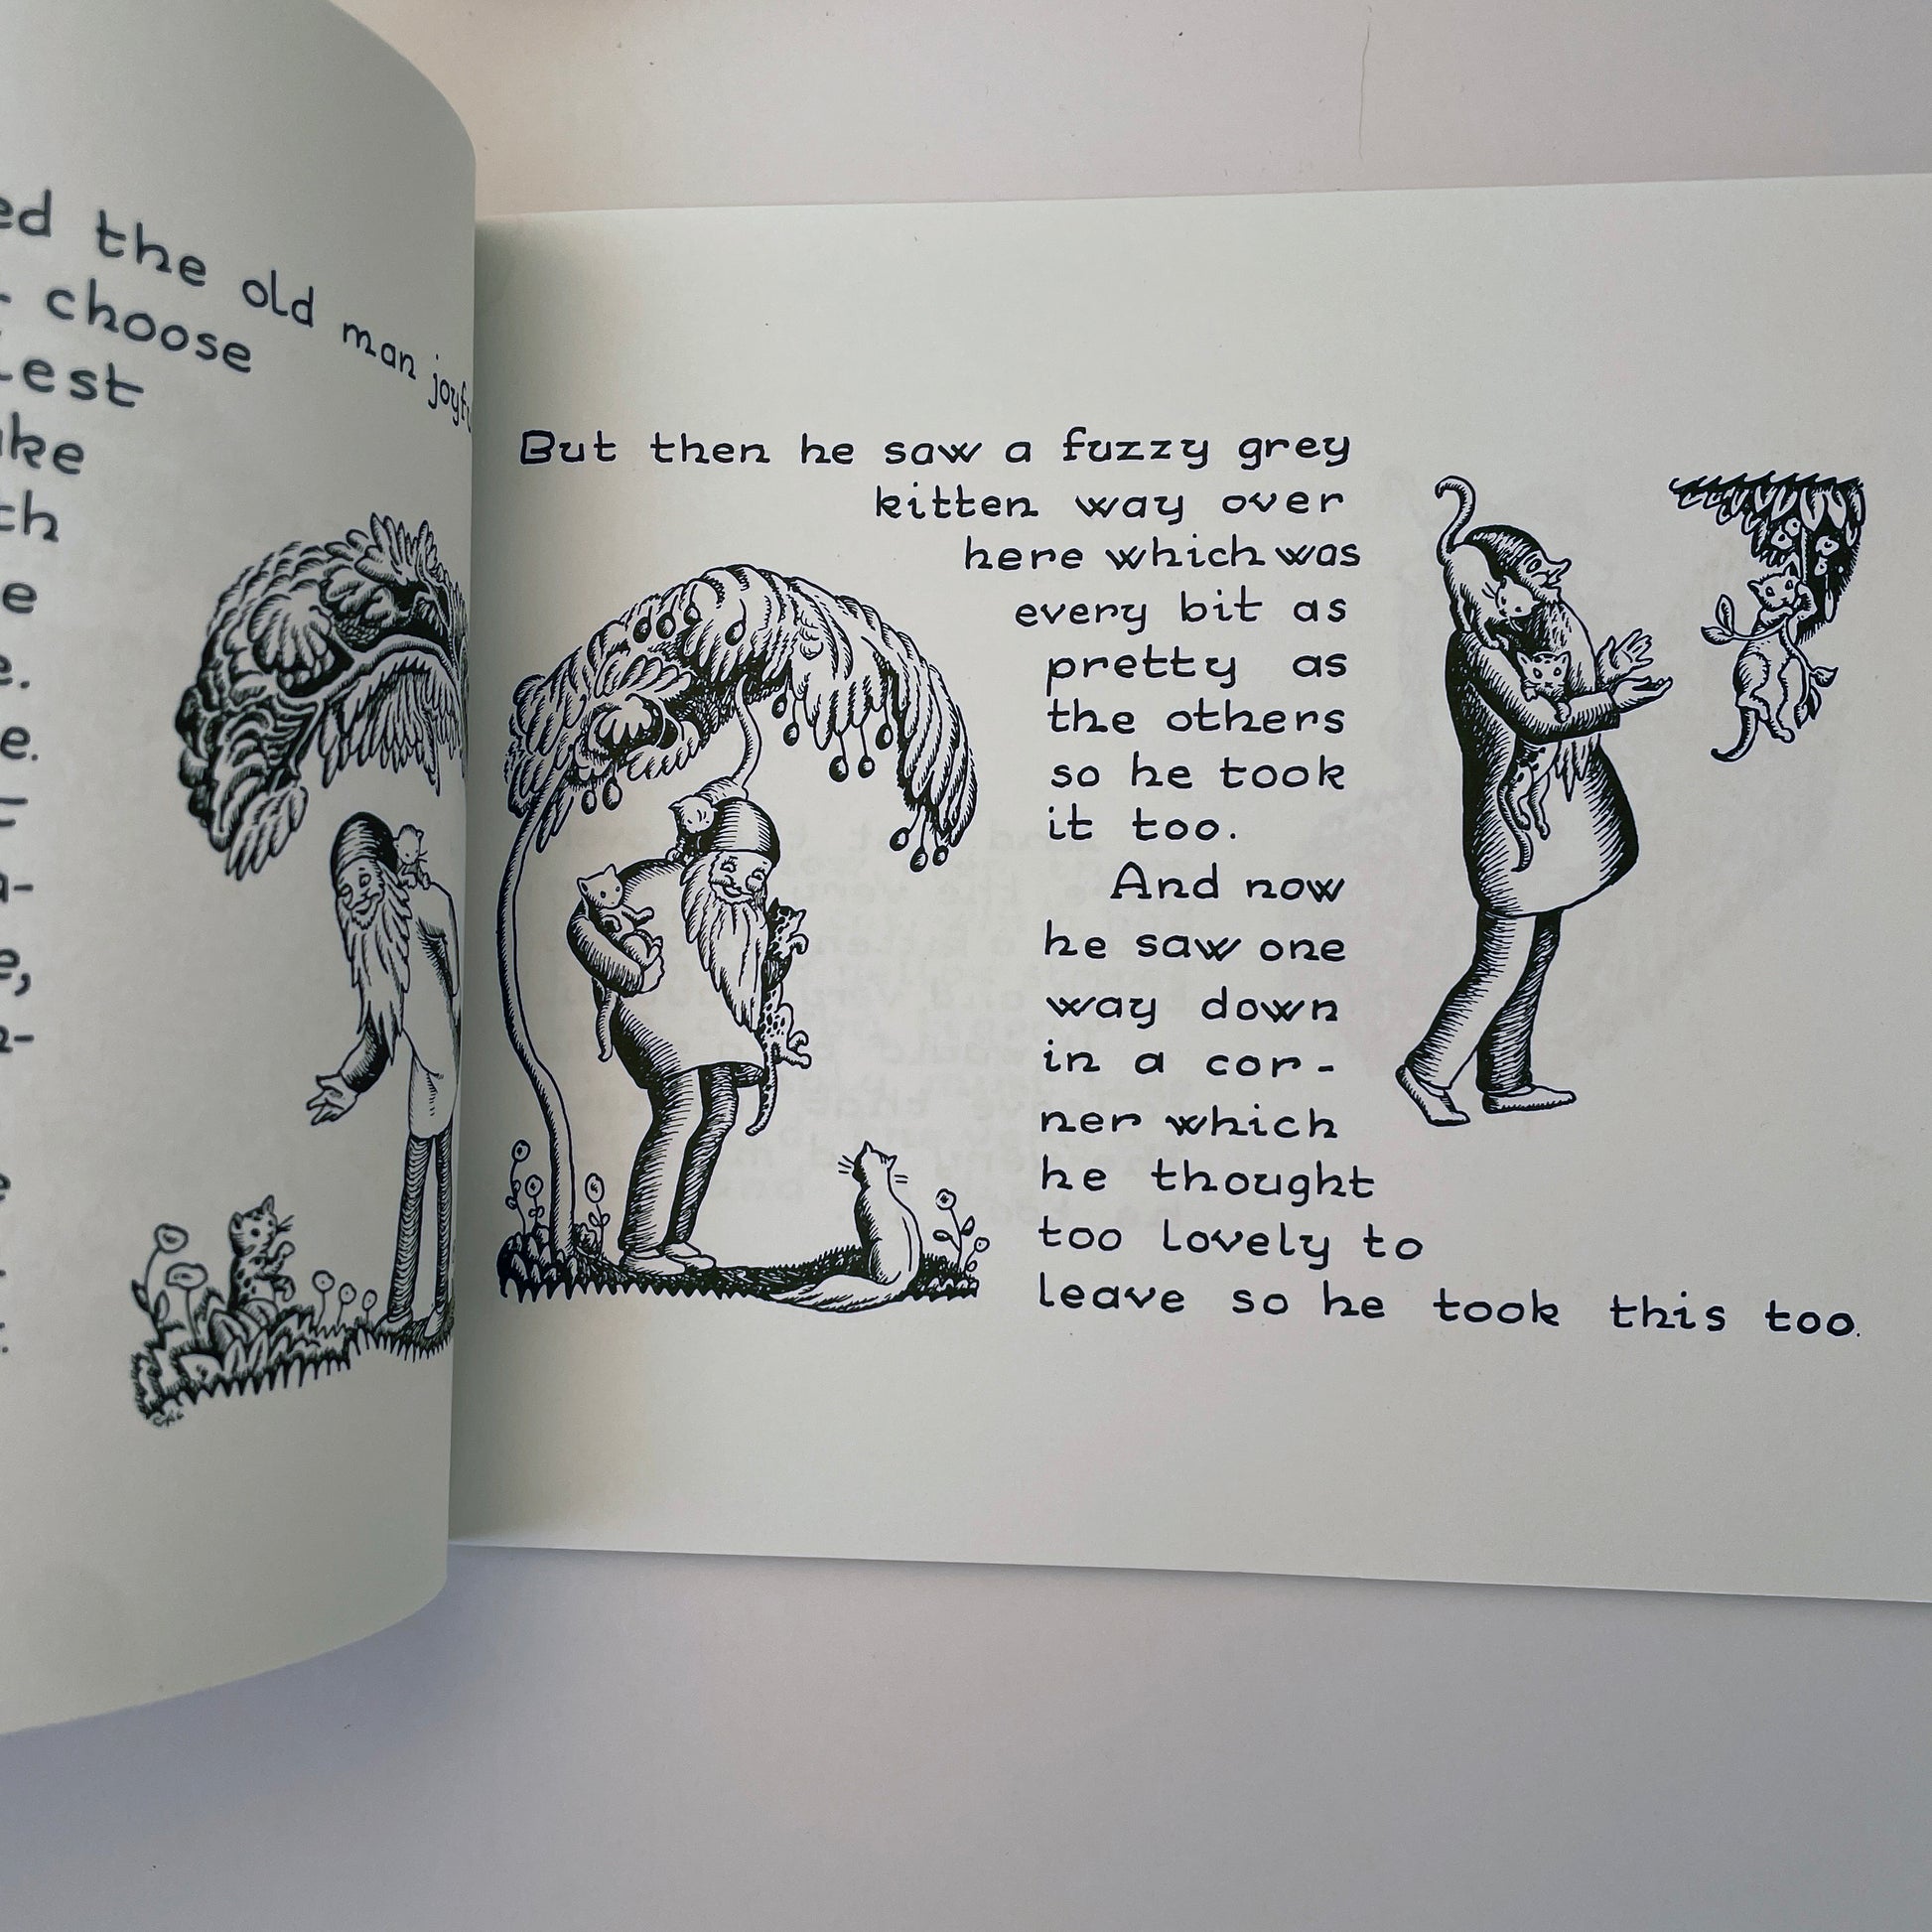 ed the old man
choose
est
ke
th
e
e.
e.
e,
But then he saw a fuzzy grey
kitten way over
here which was
every bit as
pretty as
the others
so he took
it too.
And now
he saw one
way down
in a cor-
ner which
he thought
too lovely to
leave so he took this too.